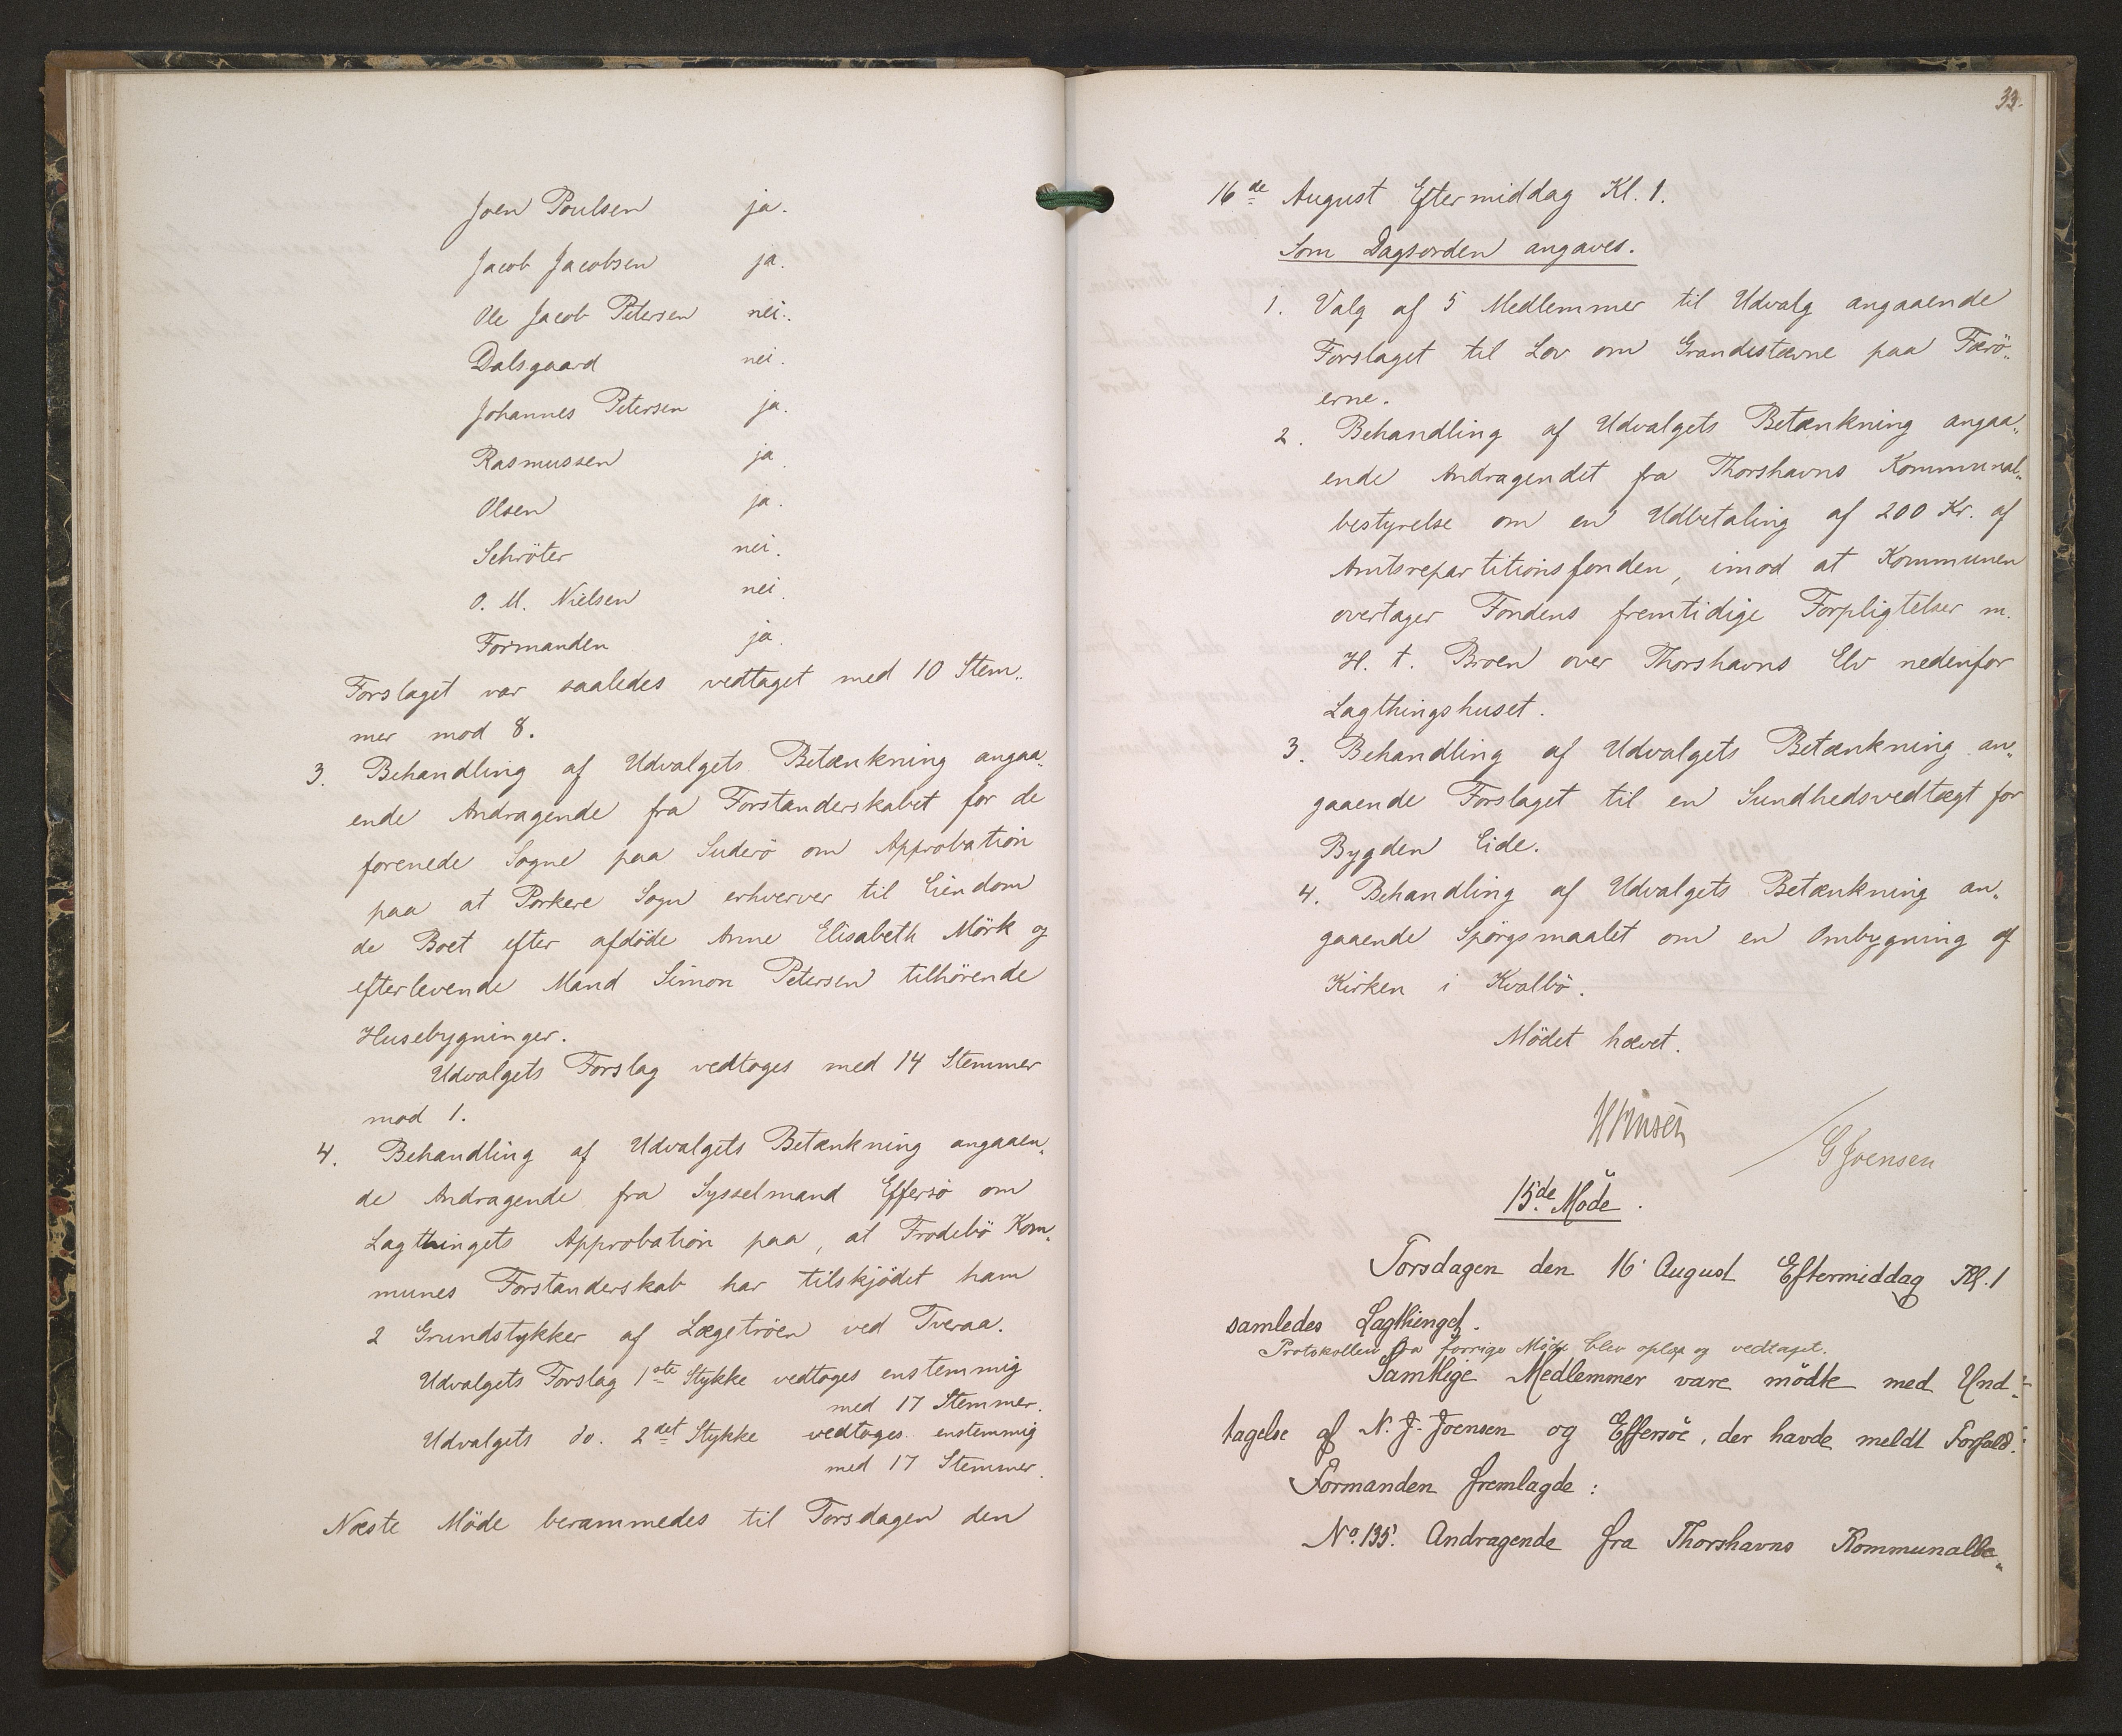 Joen Poulsen ja.
Jacob Jacobsen ja.
Ole Jacob Petersen nei.
Dalsgaard nei.
Johannes Petersen ja.
Rasmussen ja.
Olsen ja.
Schröter nei.
O. M. Nielsen nei.
Formanden ja.
Forslaget var saaledes vedtaget med 10 Stem„
mer mod 8.
3. Behandling af Udvalgets Betænkning angaa„
ende Andragende fra Forstanderskabet for de
forenede Sogne paa Suderö om Approbation
paa at Porkere Sogn erhverver til Eiendom
de Boet efter afdöde Anne Elisabeth Mörk og
efterlevende Mand Simon Petersen tilhörende
Husebygninger.
Udvalgets Forslag vedtoges med 14 Stemmer
mod 1.
4. Behandling af Udvalgets Betænkning angaaen„
de Andragende fra Sysselmand Effersö om
Lagthingets Approbation paa, at Frodebö Kom„
munes Forstanderskab har tilskjödet ham
2 Grundstykker af Lægetröen ved Tveraa.
Udvalgets Forslag 1ste Stykke vedtoges enstemmig
med 17 Stemmer.
Udvalgets do. 2det Stykke vedtoges enstemmig
med 17 Stemmer.
Næste Möde berammedes til Torsdagen den
33.
16de August Eftermiddag Kl. 1.
Som Dagsorden angaves.
1. Valg af 5 Medlemmer til Udvalg angaaende
Forslaget til Lov om Grandestævne paa Færö„
erne.
2. Behandling af Udvalgets Betænkning angaa„
ende Andragendet fra Thorshavns Kommunal„
bestyrelse om en Udbetaling af 200 Kr. af
Amtsrepartitionsfonden, imod at Kommunen
overtager Fondens fremtidige Forpligtelser m.
H. t. Broen over Thorshavns Elv nedenfor
Lagthingshuset.
3. Behandling af Udvalgets Betænkning an„
gaaende Forslaget til en Sundhedsvedtægt for
Bygden Eide.
4. Behandling af Udvalgets Betænkning an„
gaaende Spörgsmaalet om en Ombygning af
Kirken i Kvalbö.
Mödet hævet.
G Joensen
15de Möde.
Torsdagen den 16' August Eftermiddag Kl. 1
samledes Lagthinget.
Protokollen fra forrige Möde blev oplæst og vedtaget.
Samtlige Medlemmer vare mödte med Und„
tagelse af N. J. Joensen og Effersöe, der havde meldt Forfald.
Formanden fremlagde:
No. 135. Andragende fra Thorshavns Kommunalbe„